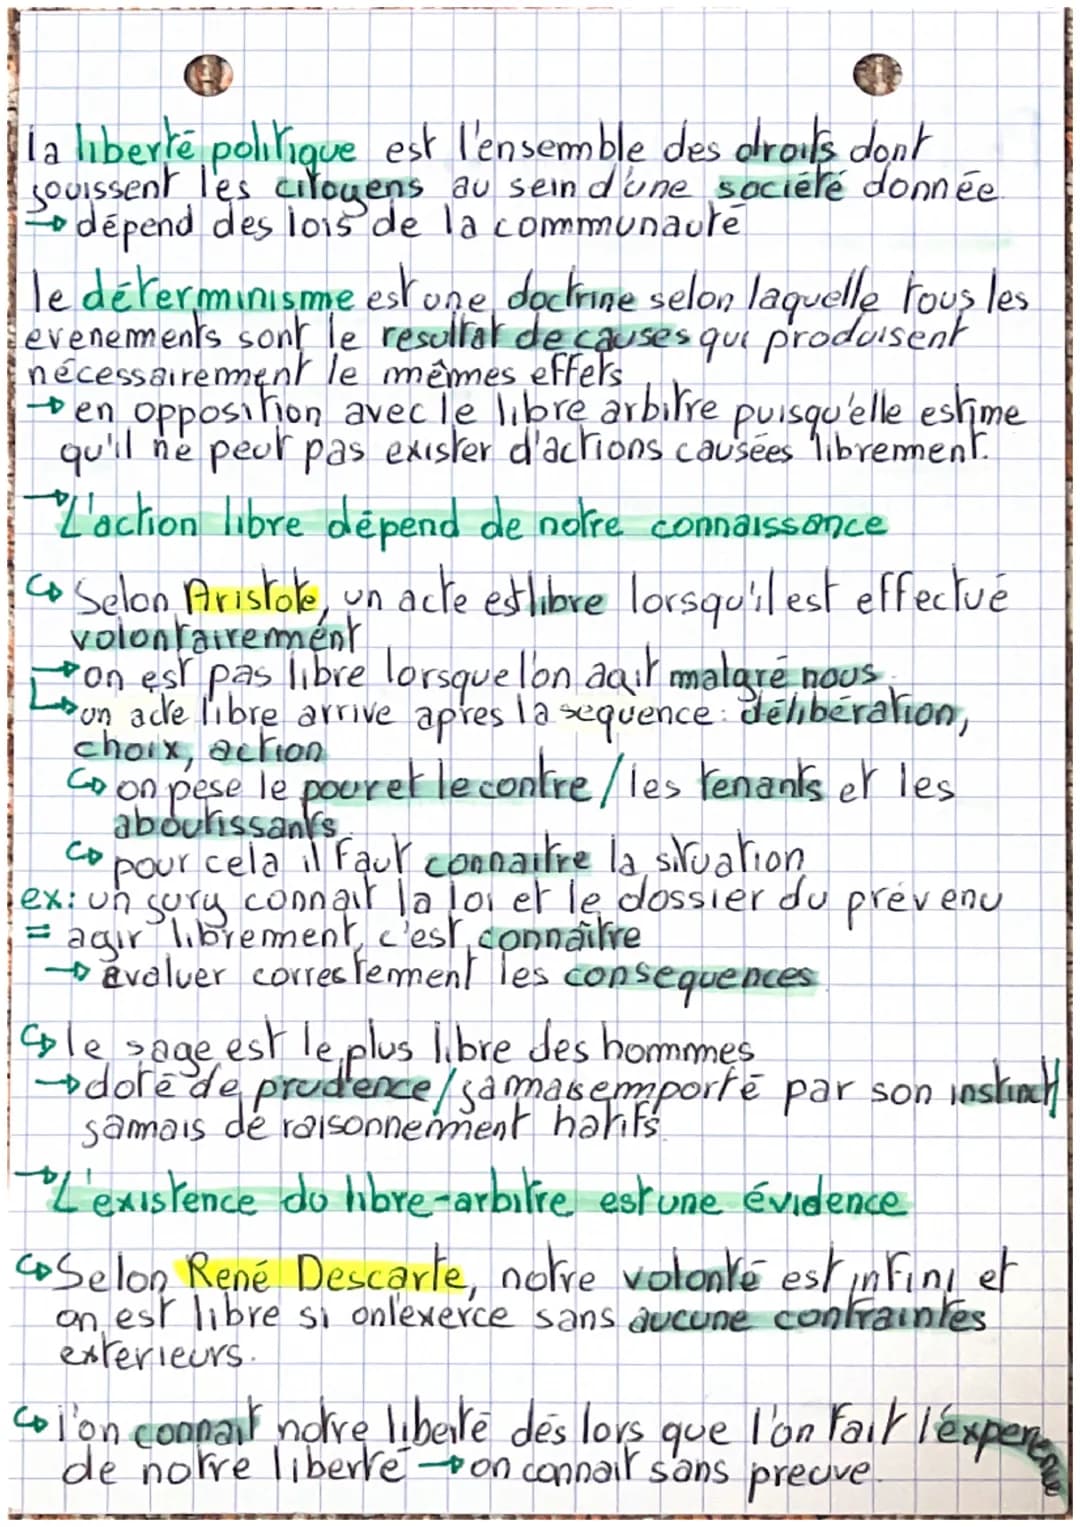 la liberté politique est l'ensemble des droits dont
jouissent les citoyens au sein d'une société donnée.
→ dépend des lois de la communauté
le déterminisme est une doctrine selon laquelle tous les
evenements sont le resultat de causes qui produisent
nécessairement le mêmes effets
→ en opposition avec le libre arbitre puisqu'elle estime
qu'il ne peut pas exister d'actions causées librement.
→ L'action libre dépend de notre connaissance
↪ Selon Aristote, un acte est libre lorsqu'il est effectué
volontairement
→ on est pas libre lorsque l'on agit malgré nous.
↳ un acte libre arrive apres la sequence : délibération,
choix, action
↪ on pese le pour et le contre / les tenants et les
aboutissants.
↪ pour cela il faut connaitre la situation
ex: un jury connait la loi et le dossier du prévenu
= agir librement, c'est connaître
→ évaluer correstement les consequences.
↪ le sage est le plus libre des hommes
→ doté de prudence / jamais emporté par son instinct /
jamais de raisonnement hatifs.
→ L'existence du libre-arbitre est une évidence
↪ Selon René Descarte, notre volonté est infini et
on est libre si on l'exerce sans aucune contraintes
exterieurs.
↪ l'on connait notre liberté dés lors que l'on fait l'expérience
de notre liberté → on connait sans preuve.